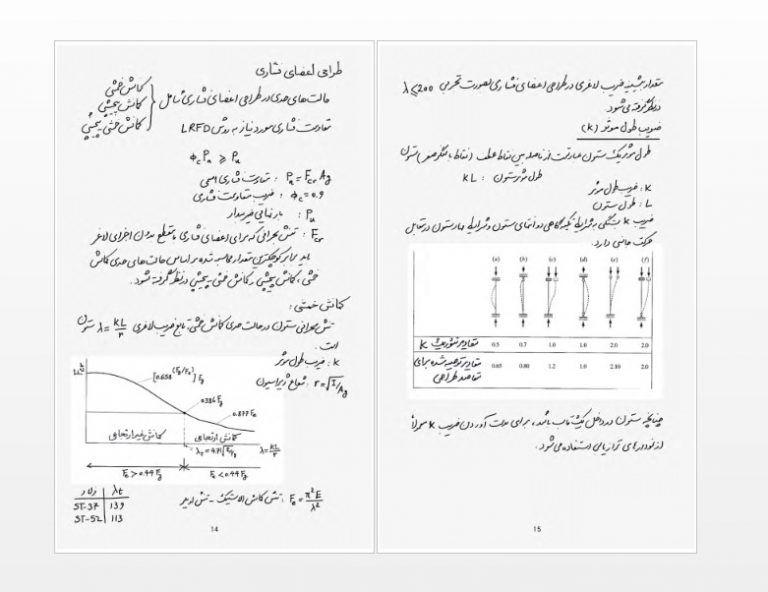 طراحی اعضای فشاری
حالت‌های حدی در طراحی اعضای فشاری شامل
کمانش خمشی
کمانش پیچشی
کمانش خمشی پیچشی
مقاومت فشاری مورد نیاز به روش LRFD
ϕc Pn ⩾ Pu
Pn = Fcr Ag : مقاومت فشاری اسمی
ϕc = 0.9 : ضریب مقاومت فشاری
Pu : بار نهایی ضریبدار
Fcr : تنش بحرانی که برای اعضای فشاری با مقطع بدون اجزای لاغر
باید برابر کوچکترین مقدار محاسبه شده بر اساس حالت‌های حدی کمانش
خمشی، کمانش پیچشی، کمانش خمشی - پیچشی در نظر گرفته شود.
کمانش خمشی :
تنش بحرانی ستون در حالت حدی کمانش خمشی تابع ضریب لاغری λ = kL/r ستون
است.
k : ضریب طول موثر
r = √I/Ag : شعاع ژیراسیون
[0.658^(Fy/Fe)] Fy
0.386 Fy
0.877 Fe
کمانش غیر ارتجاعی
کمانش ارتجاعی
λ = kL/r
Fe > 0.44 Fy
Fe < 0.44 Fy
Fe = π²E/λ² : تنش کمانش الاستیک - تنش اویلر
فولاد λt
ST-37 139
ST-52 113
14
مقدار بیشینه ضریب لاغری در طراحی اعضای فشاری بصورت تجربی λ ⩽ 200
در نظر گرفته می‌شود
ضریب طول موثر (k)
طول موثر یک ستون عبارتست از فاصله بین نقاط عطف (نقاط با لنگر صفر) ستون
طول موثر ستون : kL
k : ضریب طول موثر
L : طول ستون
ضریب k بستگی به شرایط تکیه‌گاهی دو انتهای ستون و شرایط مهار ستون در مقابل
حرکت جانبی دارد.
(a) (b) (c) (d) (e) (f)
مقادیر تئوریک k 0.5 0.7 1.0 1.0 2.0 2.0
مقادیر توصیه شده برای مقاصد طراحی 0.65 0.80 1.2 1.0 2.10 2.0
چنانچه ستون در داخل یک قاب باشد، برای بدست آوردن ضریب k معمولاً
از نمودارهای ترازیابی استفاده می‌شود.
15